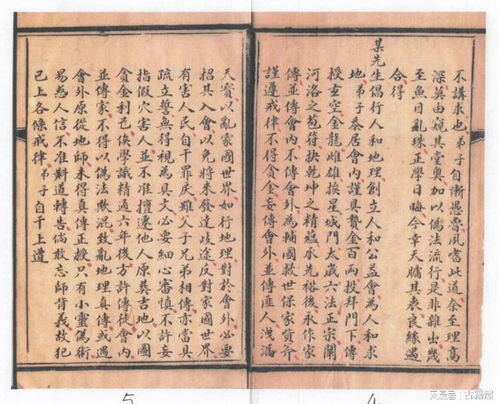 不講求也弟子自慚愚魯夙嗜此道奈至理高
深莫由窺其堂奧加以偽法流行是非雜出幾
至魚目亂珠正學日晦今幸天牖其衷良緣遇
合得
某先生倡行人和地理創立人和公益會為人和求
地弟子忝居會內謹具贄金百両投拜門下傳
授玄空金龍雌雄挨星城門太歲六法正宗闡
河洛之苞符抉乾坤之精蘊承先裕後永作家
傳並傳會內不傳會外為輔國救世保家實行
謹遵戒律不得貪金妄傳會外並傳匪人洩漏
天寶以亂家國世界如行地理對於會外必要
招其入會以免將來發達歧途反對家國世界
有害人民自干罪戾雖父子兄弟相傳亦當具
疏立誓無得視為具文必要細心審慎不許妄
指假穴害人並不准擅遷他人原葬吉地以圖
貪金利己俟學識精通六年後方許傳徒會內
並傳家不得以偽法欺混致亂地理真傳或遇
會外原從地師未得真傳正授只有小靈偽術
易惑人信不准輾道轉告倘敢忘師背義故犯
已上各條戒律弟子自干上遣
5
4
搜狐号@古籍屋